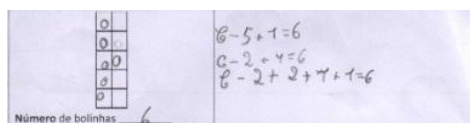 6-5+1=6
6-2+4=6
6-2+2+1+1=6
Número de bolinhas 6